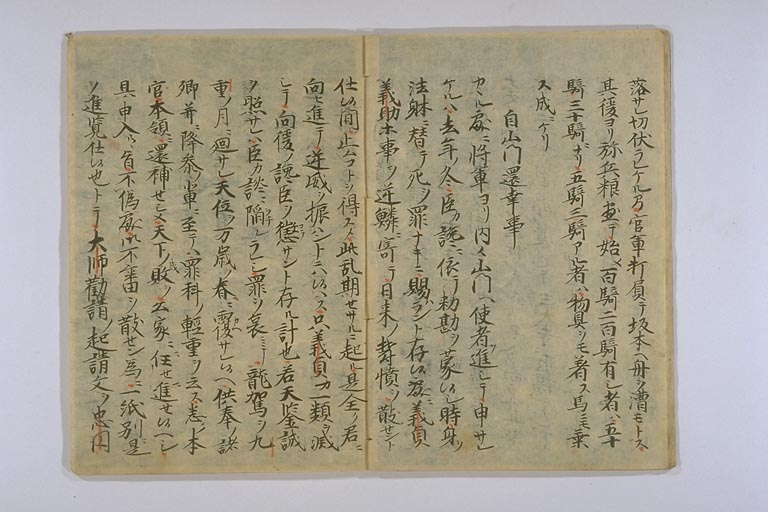 落サレ切伏ラレケル官軍打負テ坂本ヘ舟ヲ漕モトス
其後ヨリ弥兵粮尽テ始メ百騎二百騎有シ者ハ五十
騎三十騎ニナリ五騎三騎アル者ハ物具ヲモ着ス馬ニモ乗
ス成ニケリ
自山門還幸事
カヽル処ニ将軍ヨリ内々山門ヘ使者ヲ進シテ申サレ
ケルハ去年ノ冬臣カ讒ニ依テ勅勘ヲ蒙候シ時身ヲ
法躰ニ替テ死ヲ罪ナキニ賜ラント存候処ニ義貞
義助等事ヲ逆鱗ニ寄テ日来ノ欝憤ヲ散セント
仕候間止コトヲ得スメ此乱期セサルニ起ル是全ク君ニ
向ヒ進テ逆威ヲ振ハントニハ候ハス只義貞カ一類ヲ滅
シテ向後ノ讒臣ヲ懲サント存ル計也若天鑑誠
ヲ照サレハ臣カ讒ニ陥シラレシ罪ヲ哀ミテ龍駕ヲ九
重ノ月ニ廻サレ天位ヲ万歳ノ春ニ覆サレ候ヘ供奉ノ諸
卿并ニ降参ノ輩ニ至テハ罪科ノ軽重ヲ云ス悉ク本
官本領ニ還補セシメ天下ノ成敗ヲ公家ニ任セ進セ候ヘシ
具ニ申入候旨不偽処御不審ヲ散セン為ニ一紙別是
ヲ進覧仕候也トテ大師勧請ノ起請文ヲ忠円